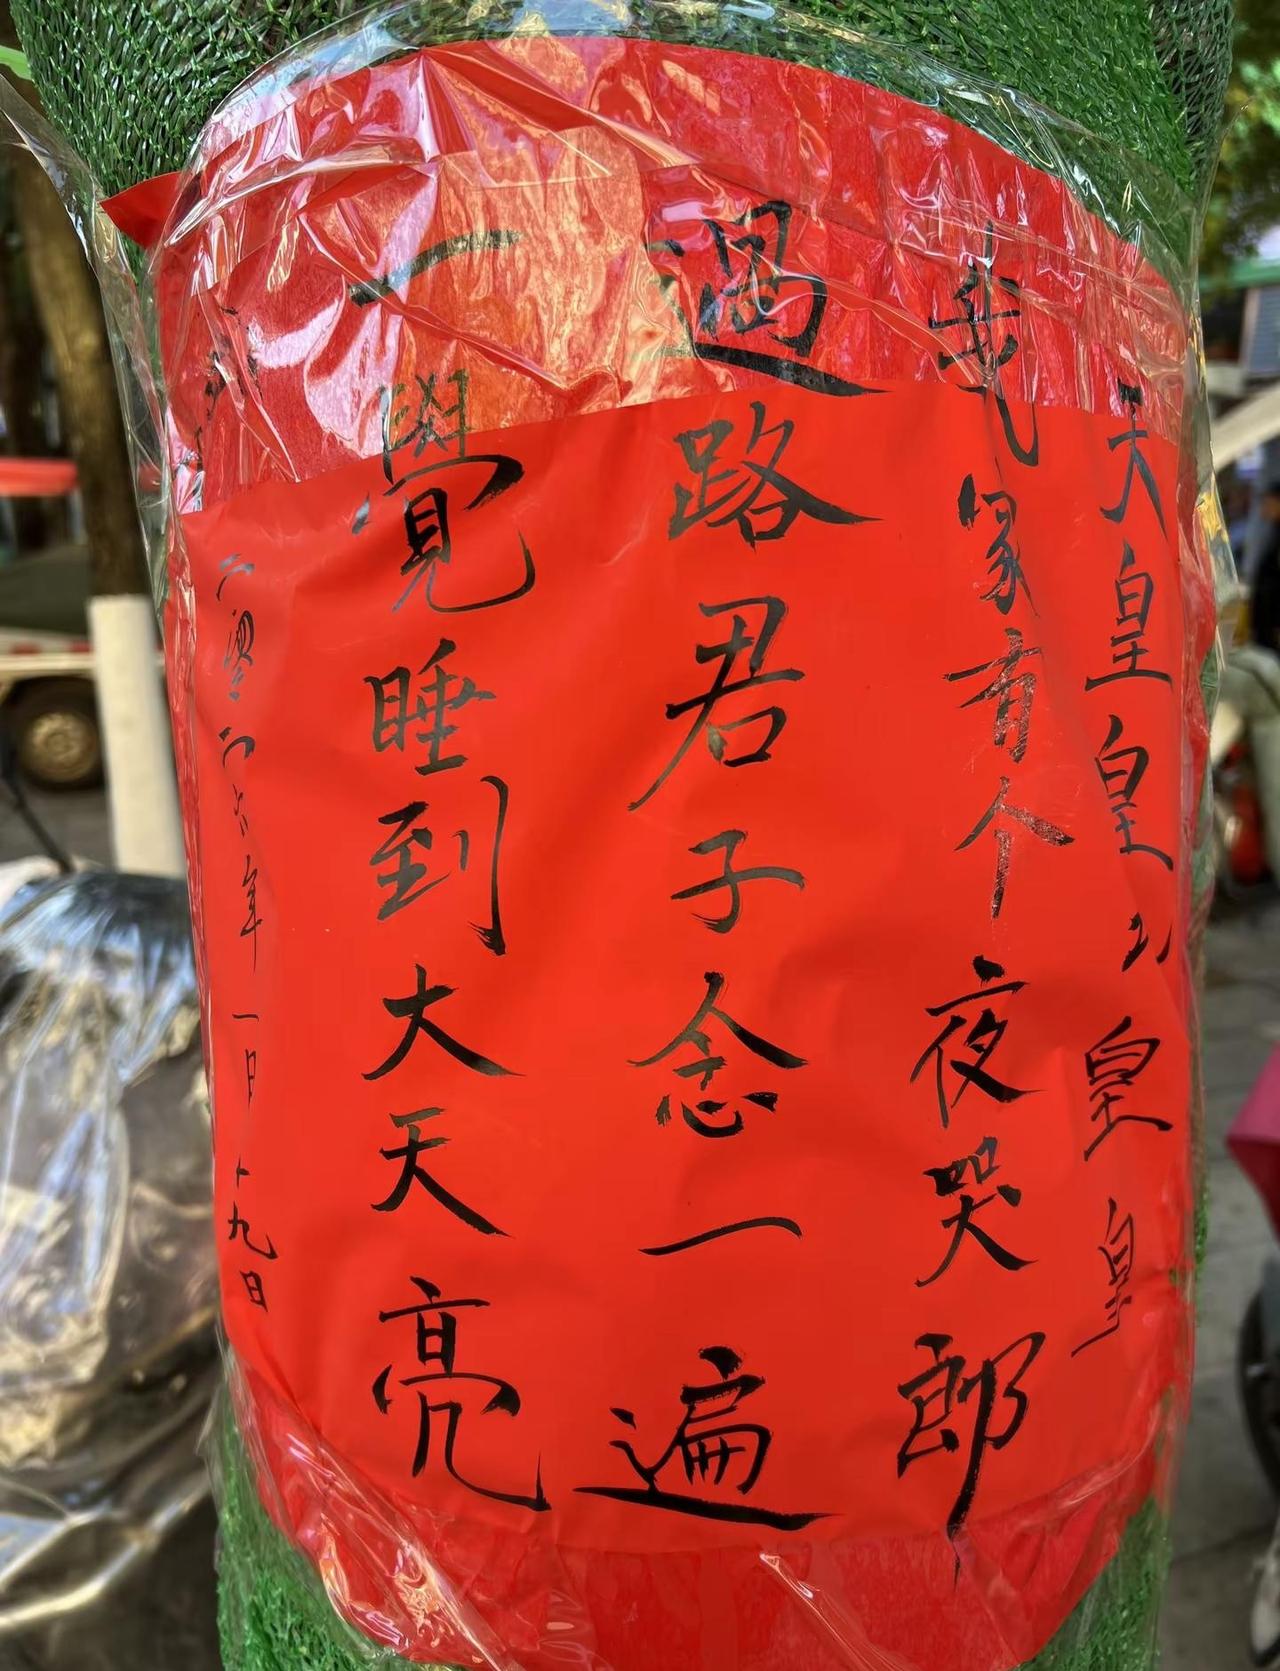 天皇皇地皇皇
我家有个夜哭郎
過路君子念一遍
一覺睡到大天亮
二零二六年一月十九日